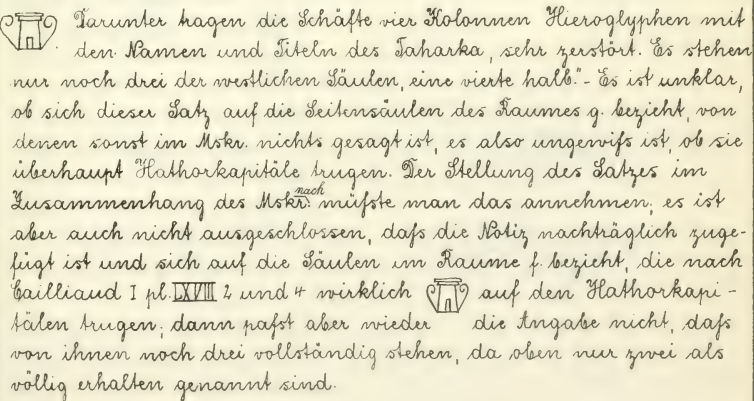 Darunter tragen die Schäfte vier Kolonnen Hieroglyphen mit
den Namen und Titeln des Taharka, sehr zerstört. Es stehen
nur noch drei der westlichen Säulen, eine vierte halb." - Es ist unklar,
ob sich dieser Satz auf die Seitensäulen des Raumes g. bezieht, von
denen sonst im Mskr. nichts gesagt ist, es also ungewiſs ist, ob sie
überhaupt Hathorkapitäle trugen. Der Stellung des Satzes im
Zusammenhang des Mskr. nach müſste man das annehmen; es ist
aber auch nicht ausgeschlossen, daſs die Notiz nachträglich zuge-
fügt ist und sich auf die Säulen im Raume f. bezieht, die nach
Cailliaud I pl. LXVIII 2 und 4 wirklich auf den Hathorkapi-
tälen trugen; dann paſst aber wieder die Angabe nicht, daſs
von ihnen noch drei vollständig stehen, da oben nur zwei als
völlig erhalten genannt sind.